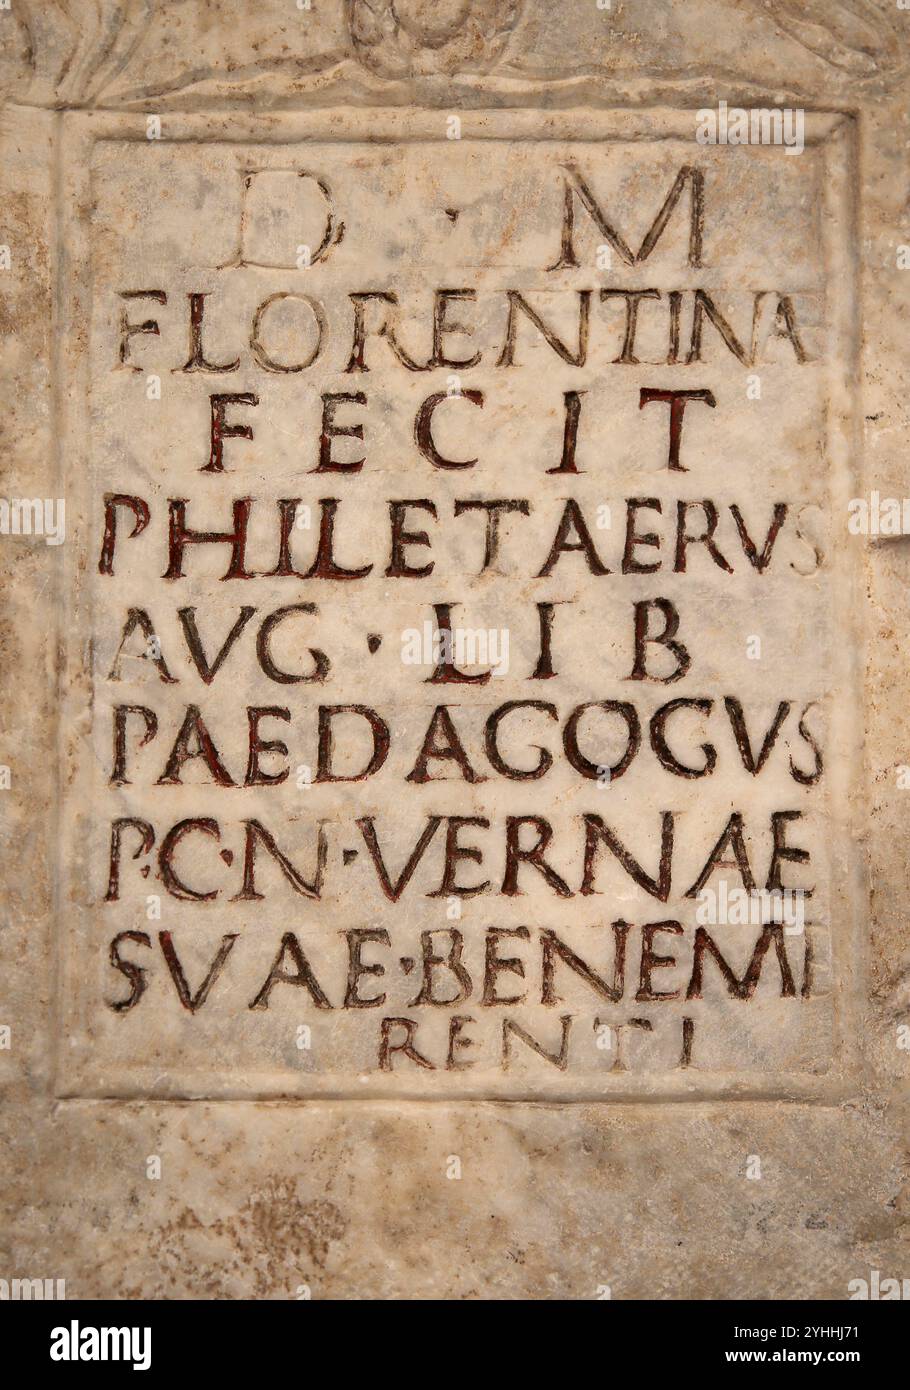 D · M
FLORENTINAE
FECIT
PHILETAERVS
AVG · LIB
PAEDAGOGVS
P·C·N·VERNAE
SVAE·BENEME
RENTI
alamy
Image ID: 2YHHJ71
www.alamy.com